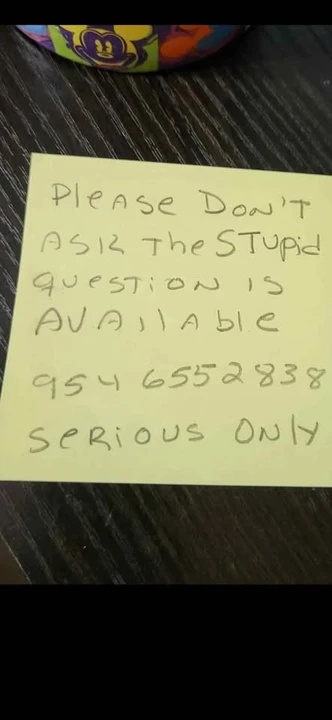 Please Don't
Ask The STupid
question is
AVAilAble
954 6552838
Serious Only